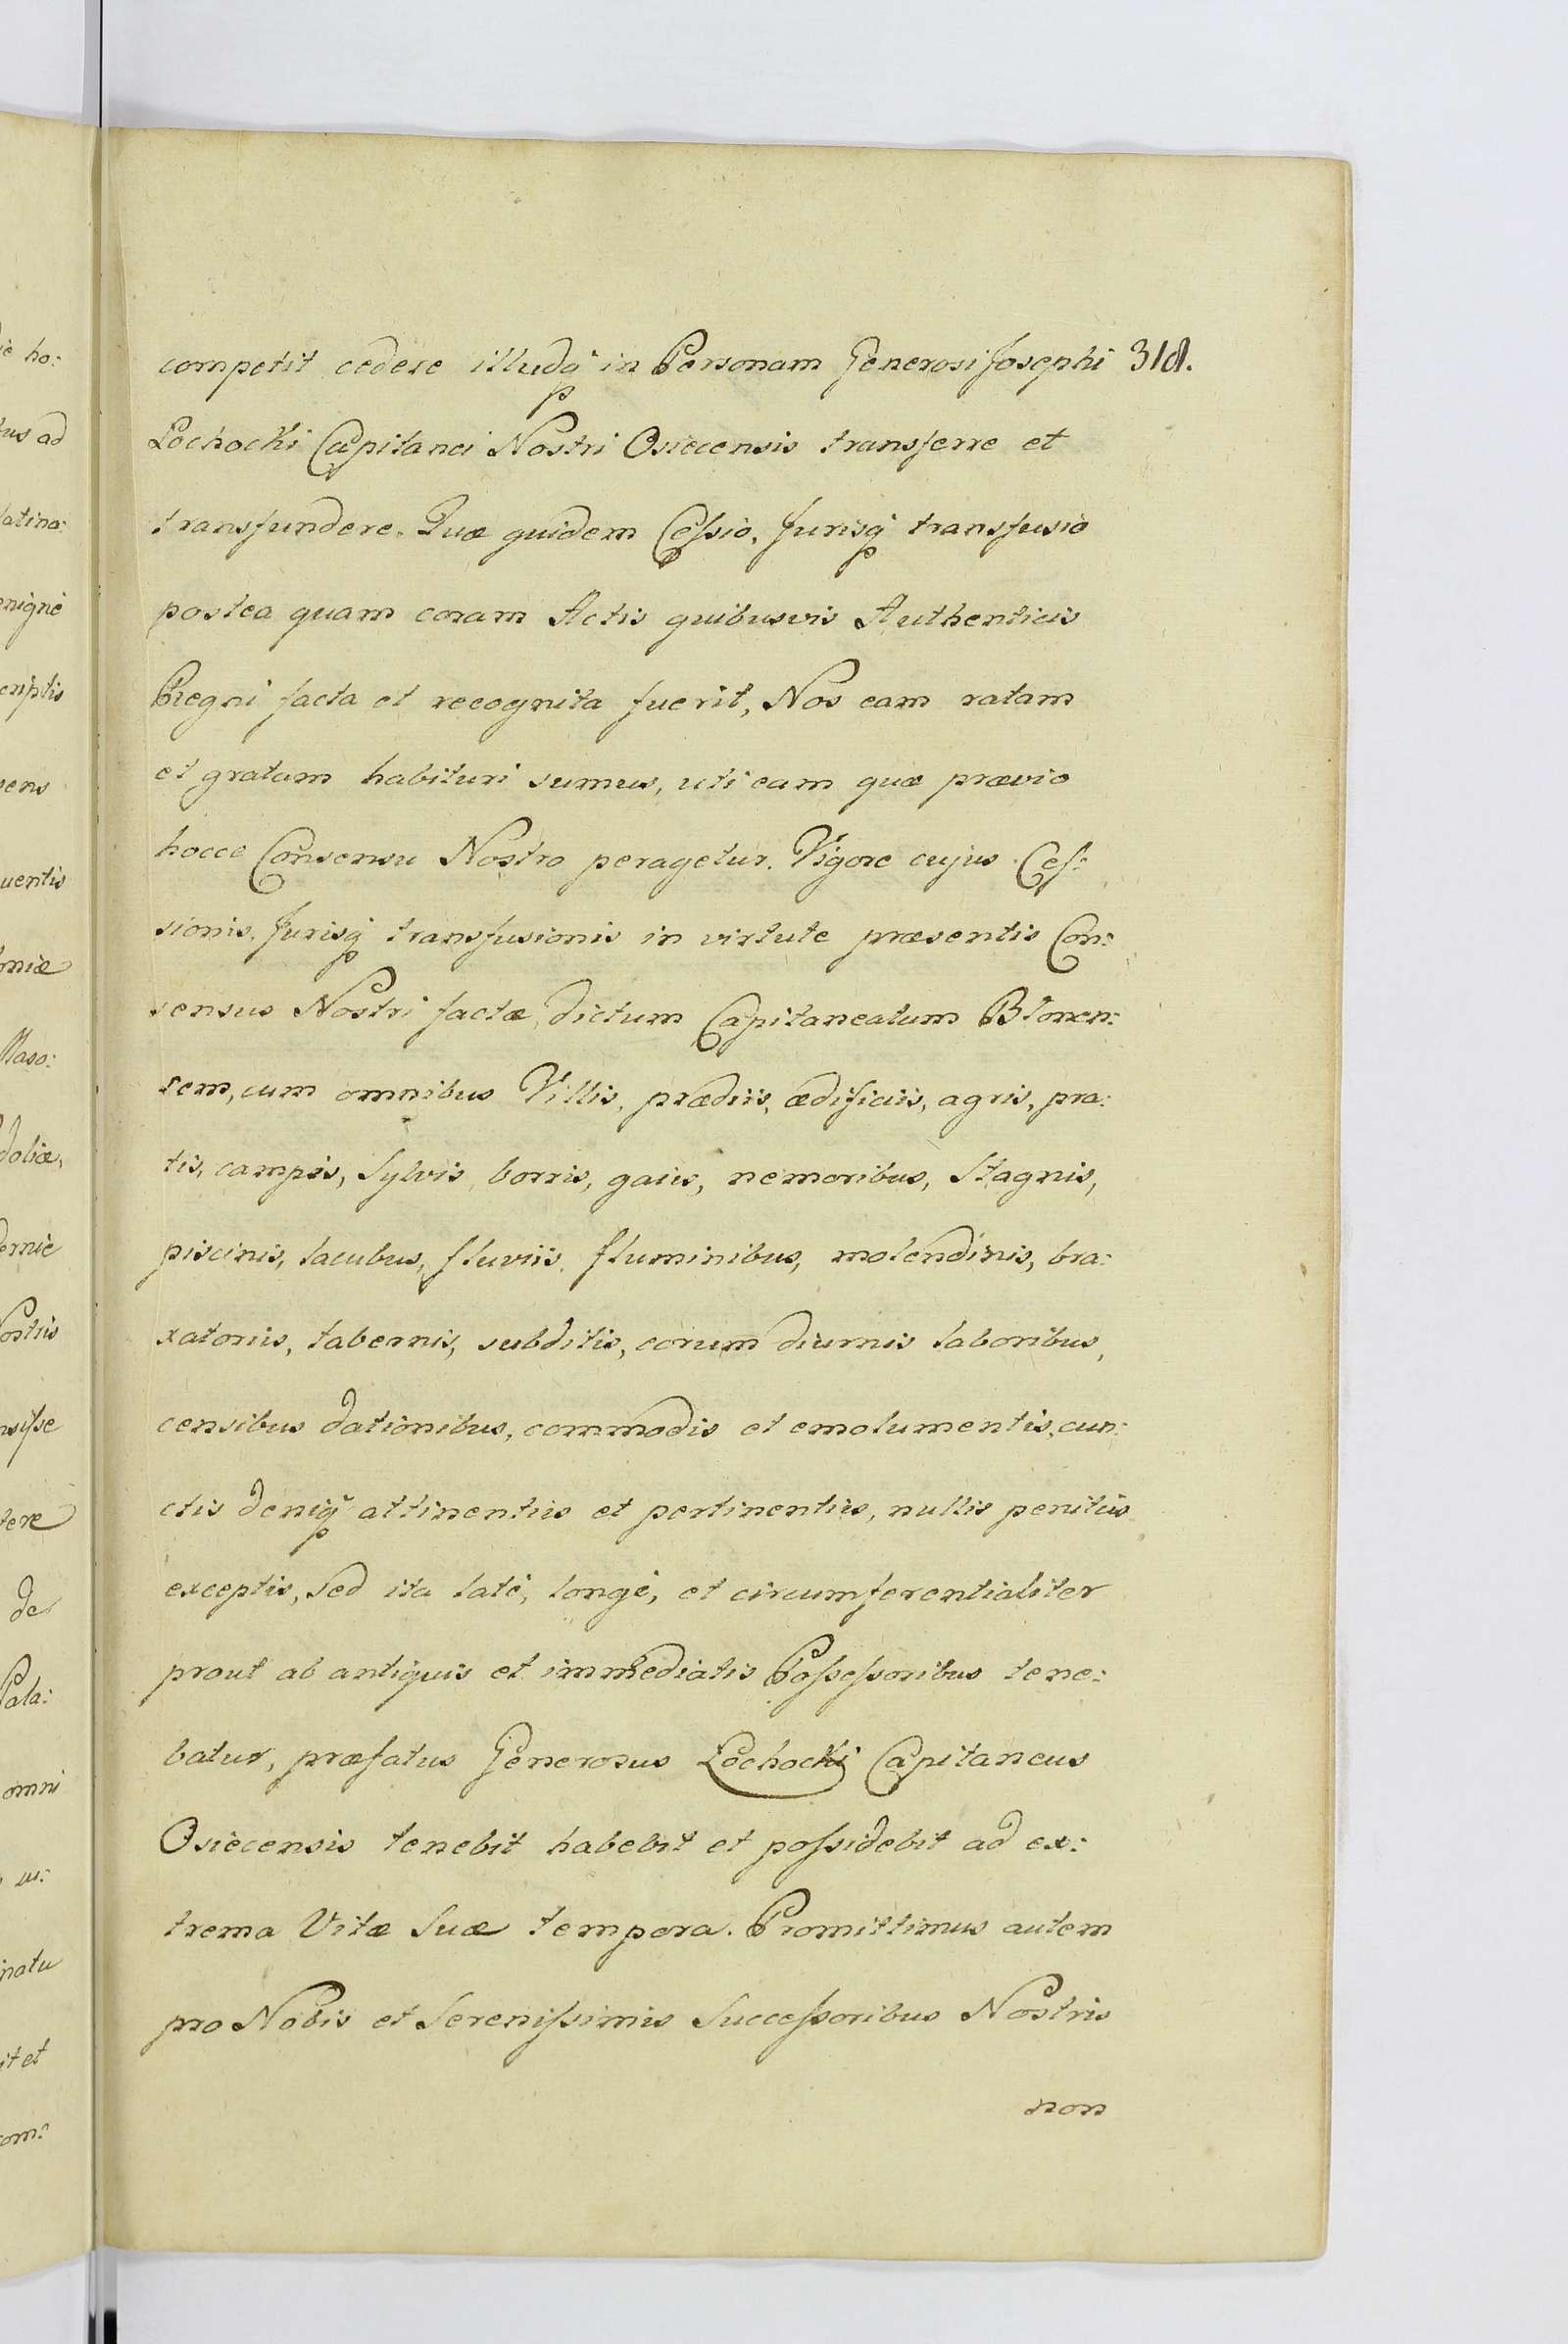 competit cedere illudq in Personam Generosi Josephi 318.
Łochocki Capitanei Nostri Osiecensis transferre et
transfundere. Quæ quidem Cessio, Jurisq transfusio
postea quam coram Actis quibusvis Authenticis
Regni facta et recognita fuerit, Nos eam ratam
et gratam habituri sumus, uti eam quæ prævio
hocce Consensu Nostro peragetur. Vigore cujus Ces:
sionis, Jurisq transfusionis in virtute præsentis Con:
sensus Nostri factæ, dictum Capitaneatum Błonen:
sem, cum omnibus Villis, prædiis, ædificiis, agris, pra:
tis, campis, Sylvis, borris, gaiis, nemoribus, Stagnis,
piscinis, lacubus, fluviis, fluminibus, molendinis, bra:
xatoriis, tabernis, subditis, eorum diurnis laboribus,
censibus dationibus, commodis et emolumentis, cun:
ctis deniq attinentiis et pertinentiis, nullis penitùs
exceptis, Sed ita latè, longè, et circumferentialiter
prout ab antiquis et immediatis Possessoribus tene:
batur, præfatus Generosus Łochocki Capitaneus
Osiecensis tenebit habebit et possidebit ad ex:
trema Vitæ Suæ tempora. Promittimus autem
pro Nobis et Serenissimis Successoribus Nostris
non